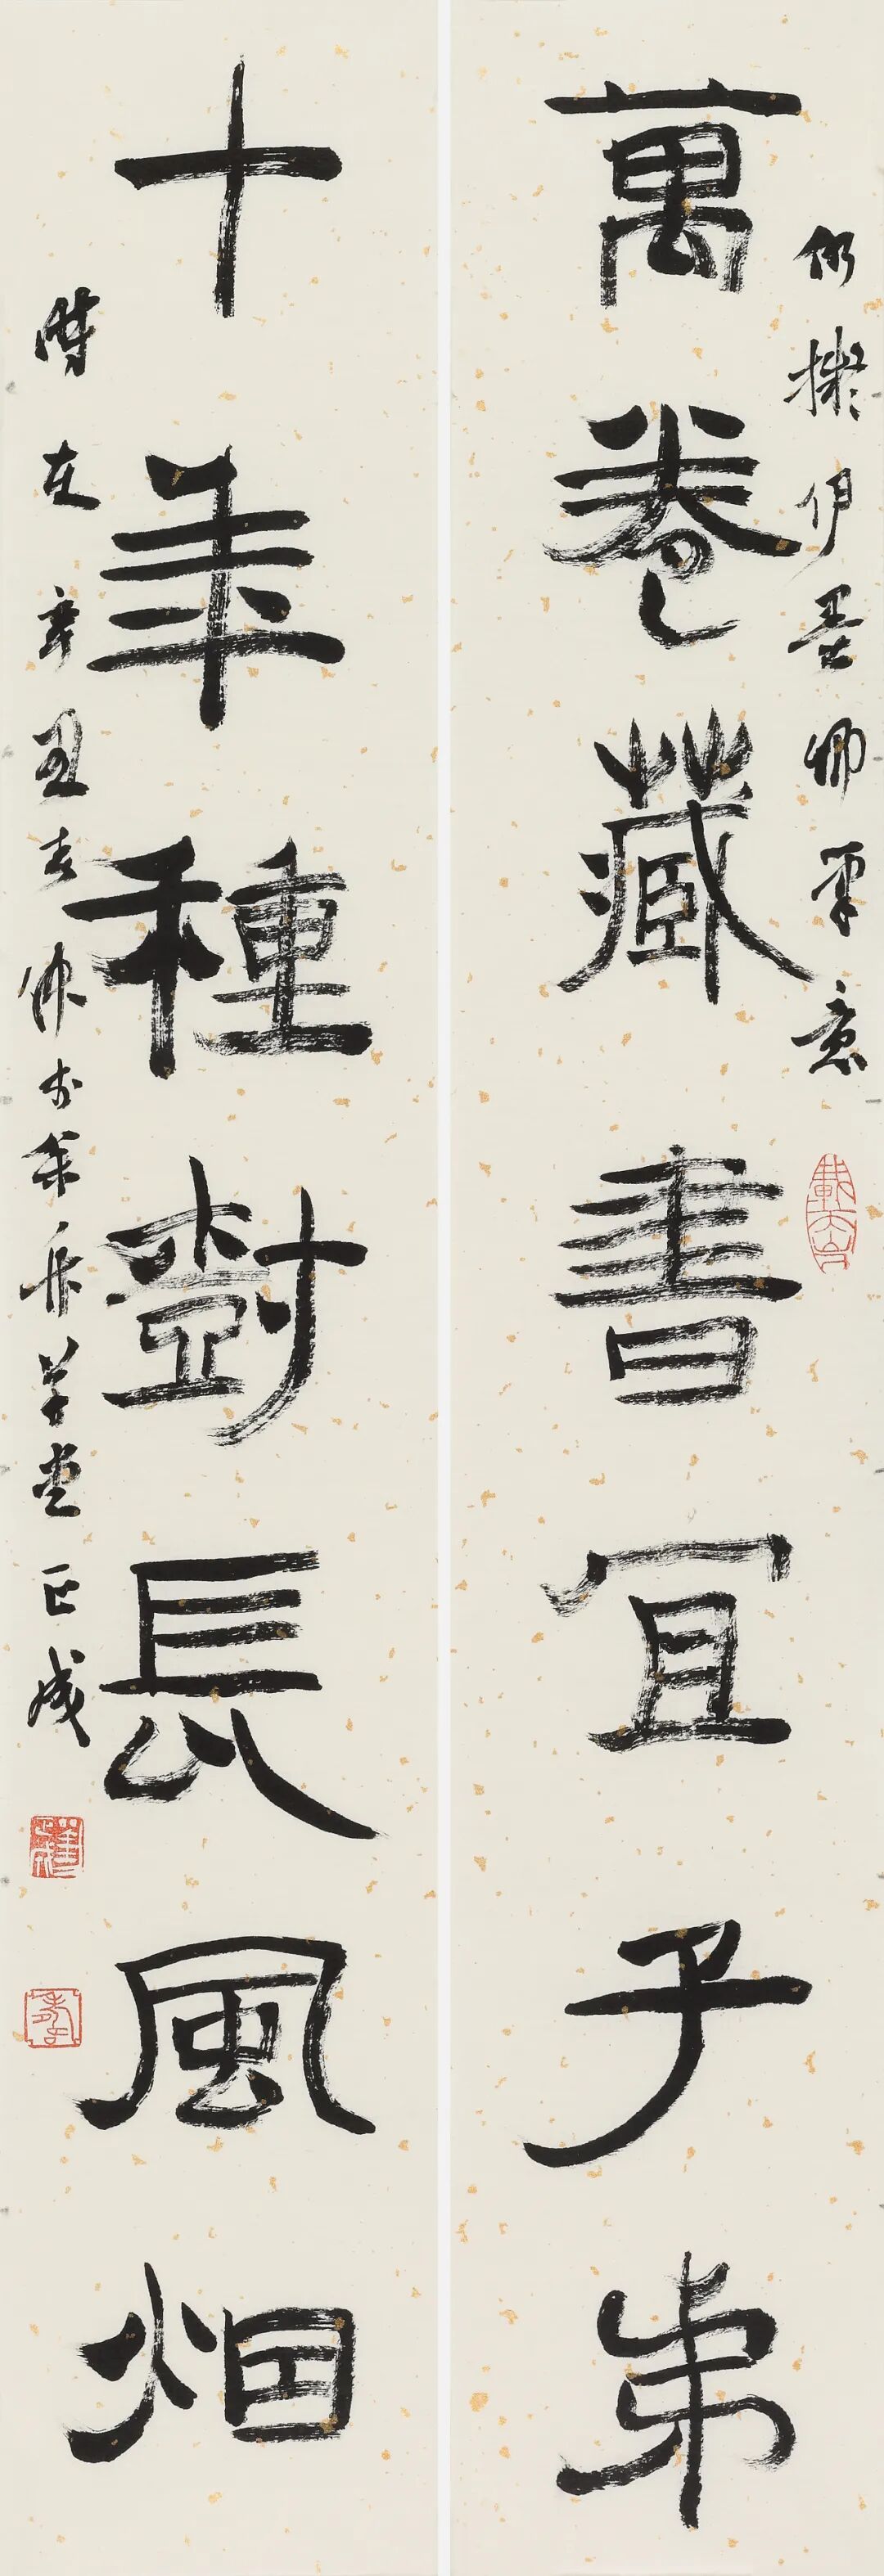 仿擬伊墨卿筆意
萬卷藏書宜子弟
十年種樹長風烟
時在辛丑 作於松竹草堂 正成